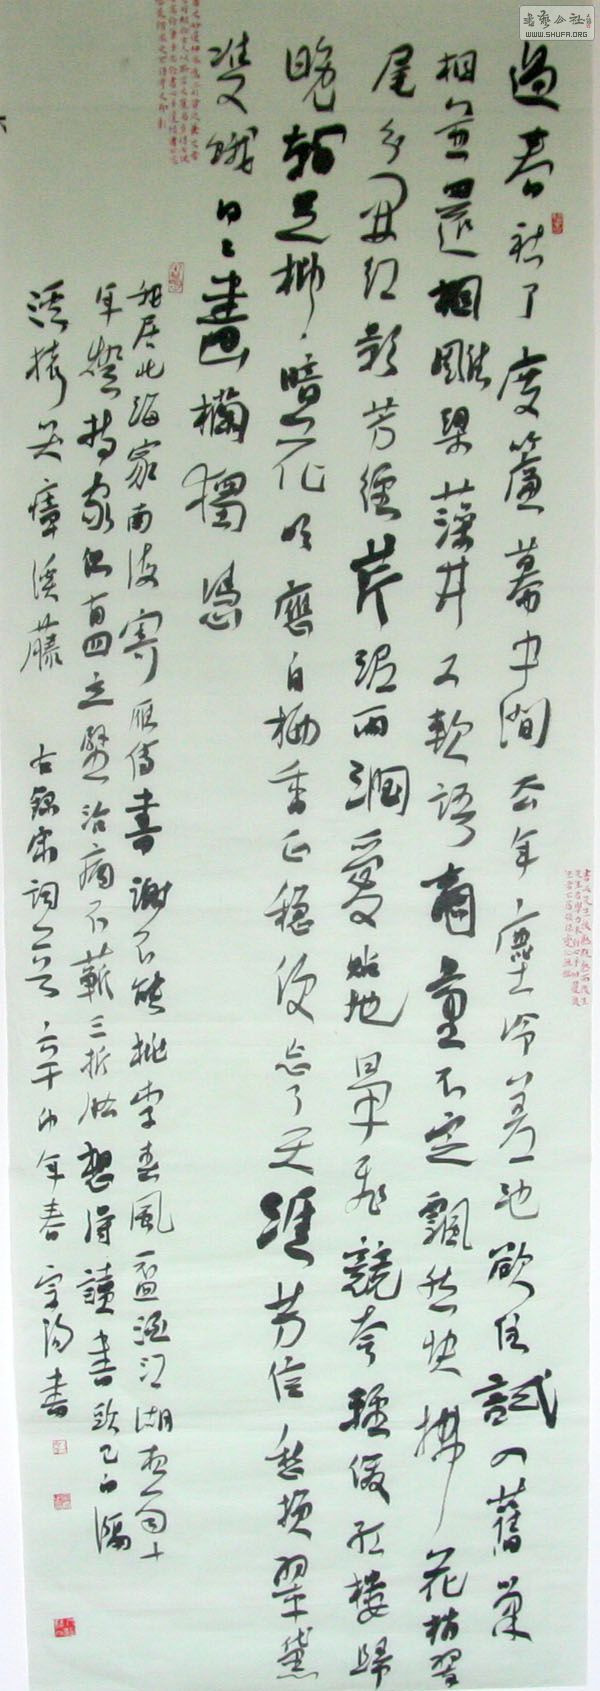 過春社了度簾幕中間去年塵冷差池欲住試入舊巢
相並還相雕梁藻井又軟語商量不定飄然快拂花梢翠
尾分開紅影芳徑芹泥雨潤愛貼地爭飛競夸輕俊紅樓歸
晚看足柳暗花暝應自栖香正穩便忘了天涯芳信愁損翠黛
雙蛾日日畫闌獨憑
我居北海君南海寄雁傳書謝不能桃李春風一盃酒江湖夜雨十
年燈持家但有四立壁治病不蘄三折肱想得讀書頭已白隔
溪猿哭瘴溪藤
右錄宋詞 辛卯年春 書
書藝公社
WWW.SHUFA.ORG